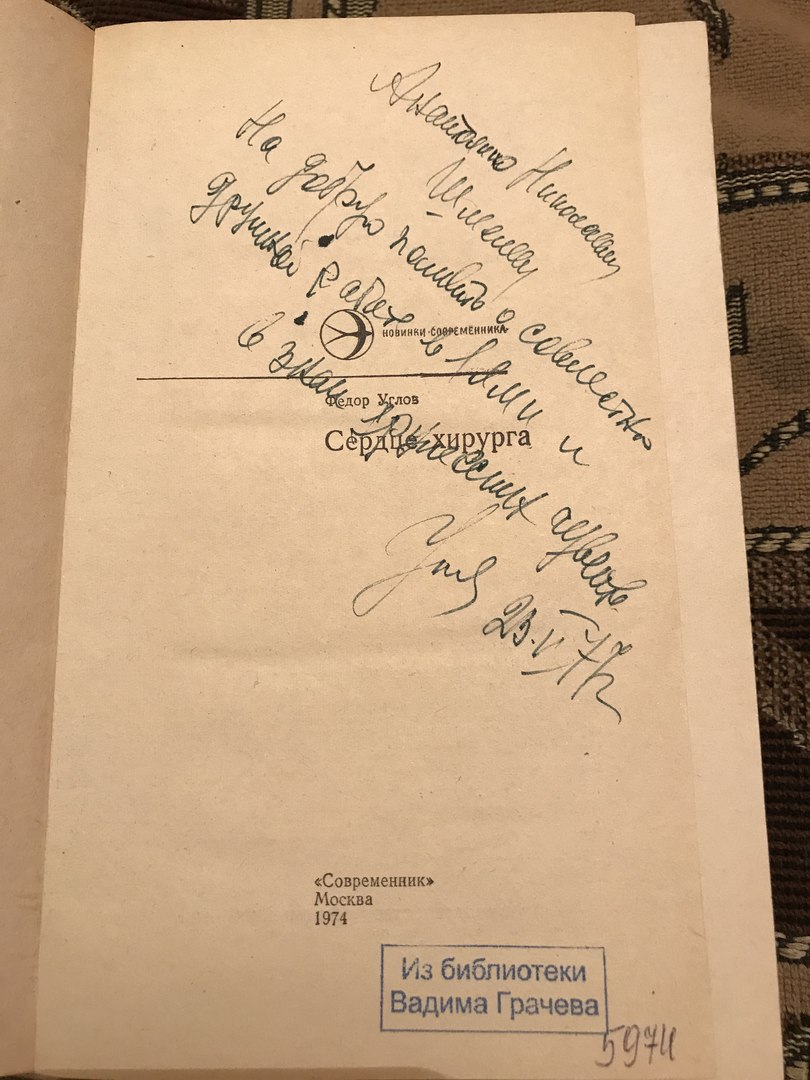 Анатолию Николаевичу
Шмелеву
На добрую память о совместной
дружной работе с Вами и
в знак дружеских чувств
Углов
23.VI.77г
НОВИНКИ·СОВРЕМЕННИКА
Федор Углов
Сердце хирурга
«Современник»
Москва
1974
Из библиотеки
Вадима Грачева